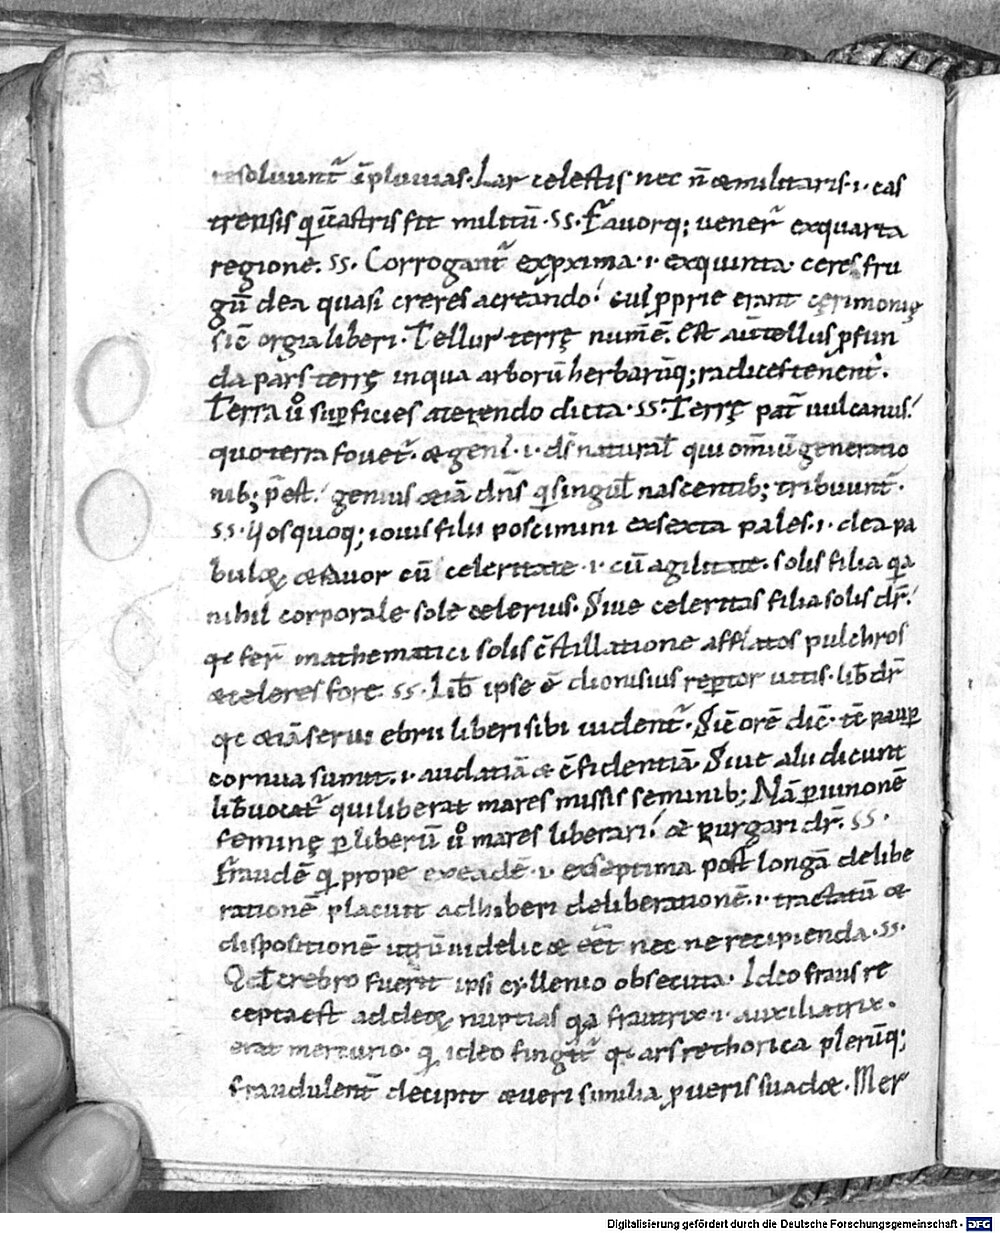 resoluunt᷑ ī pluuias. Lar celestis nec n̄ & militaris .i. cas
trensis qui ī castris fit militū. SS. Fauorq; uener᷑ ex quarta
regione. SS. Corrogant᷑ ex pxima .i. ex quinta. ceres fru
gū dea quasi creres a creando. cui pprie erant cęrimonię
sic̄ orgia liberi. Tellur᷑ terrę num̄ē. Est aūt tellus pfun
da pars terrę in qua arborū herbarūq; radices tenent᷑.
Terra uº supficies a terendo dicta. SS. Terrę pat᷑ uulcanus.
quo terra fouet᷑. & geni᷑ .i. ds̄ natural᷑ qui omīū generatio
nib; p̄est. genius & iā dn̄s qi singul᷑ nascentib; tribuunt᷑.
SS. Uos quoq; iouis filii poscimini ex sexta pales .i. dea pa
bulo⁊ & fauor cū celeritate .i. cū agilitate. solis filia qa
nihil corporale sole celerius. Siue celeritas filia solis dr᷑.
qe fer᷑ mathematici solis c̄stillatione afflatos pulchros
& celeres fore. SS. Lib᷑ ipse ē dionisius reptor uitis. lib᷑ dr᷑
qe & iā serui ebrii liberi sibi uident᷑. Sic̄ orē dic̄. tc̄ paup
cornua sumit .i. audatiā & c̄fidentiā. Siue alii dicunt
lib᷑ uocat᷑ qui liberat mares missis seminib; Nā p iunonē
feminę p liberū uº mares liberari. & purgari dr᷑. SS.
Fraudē qi prope exeadē .i. ex septima post longā delibe
rationē placuit adhiberi deliberationē .i. tractatū &
dispositionē utrū uidelic& eēt nec ne recipienda. SS.
Qd crebro fuerit ipsi cyllenio obsecuta. Ideo fraus re
cepta est ad deo⁊ nuptias qa frautrix .i. auxiliatrix.
erat mercurio. qi ideo fingit᷑ qe ars rethorica plerūq;
fraudulent᷑ decipit & ueri similia p ueris suad&. Mer
Digitalisierung gefördert durch die Deutsche Forschungsgemeinschaft - DFG